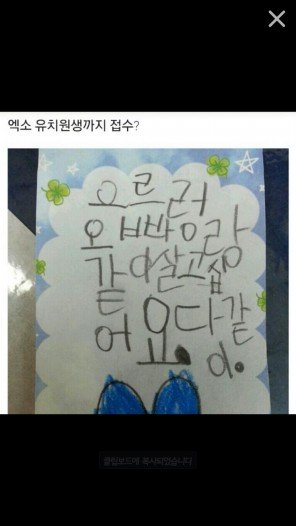 엑소 유치원생까지 접수?
으르렁
오빠랑
같이살고십
어요.다같
이.
클립보드에 복사되었습니다